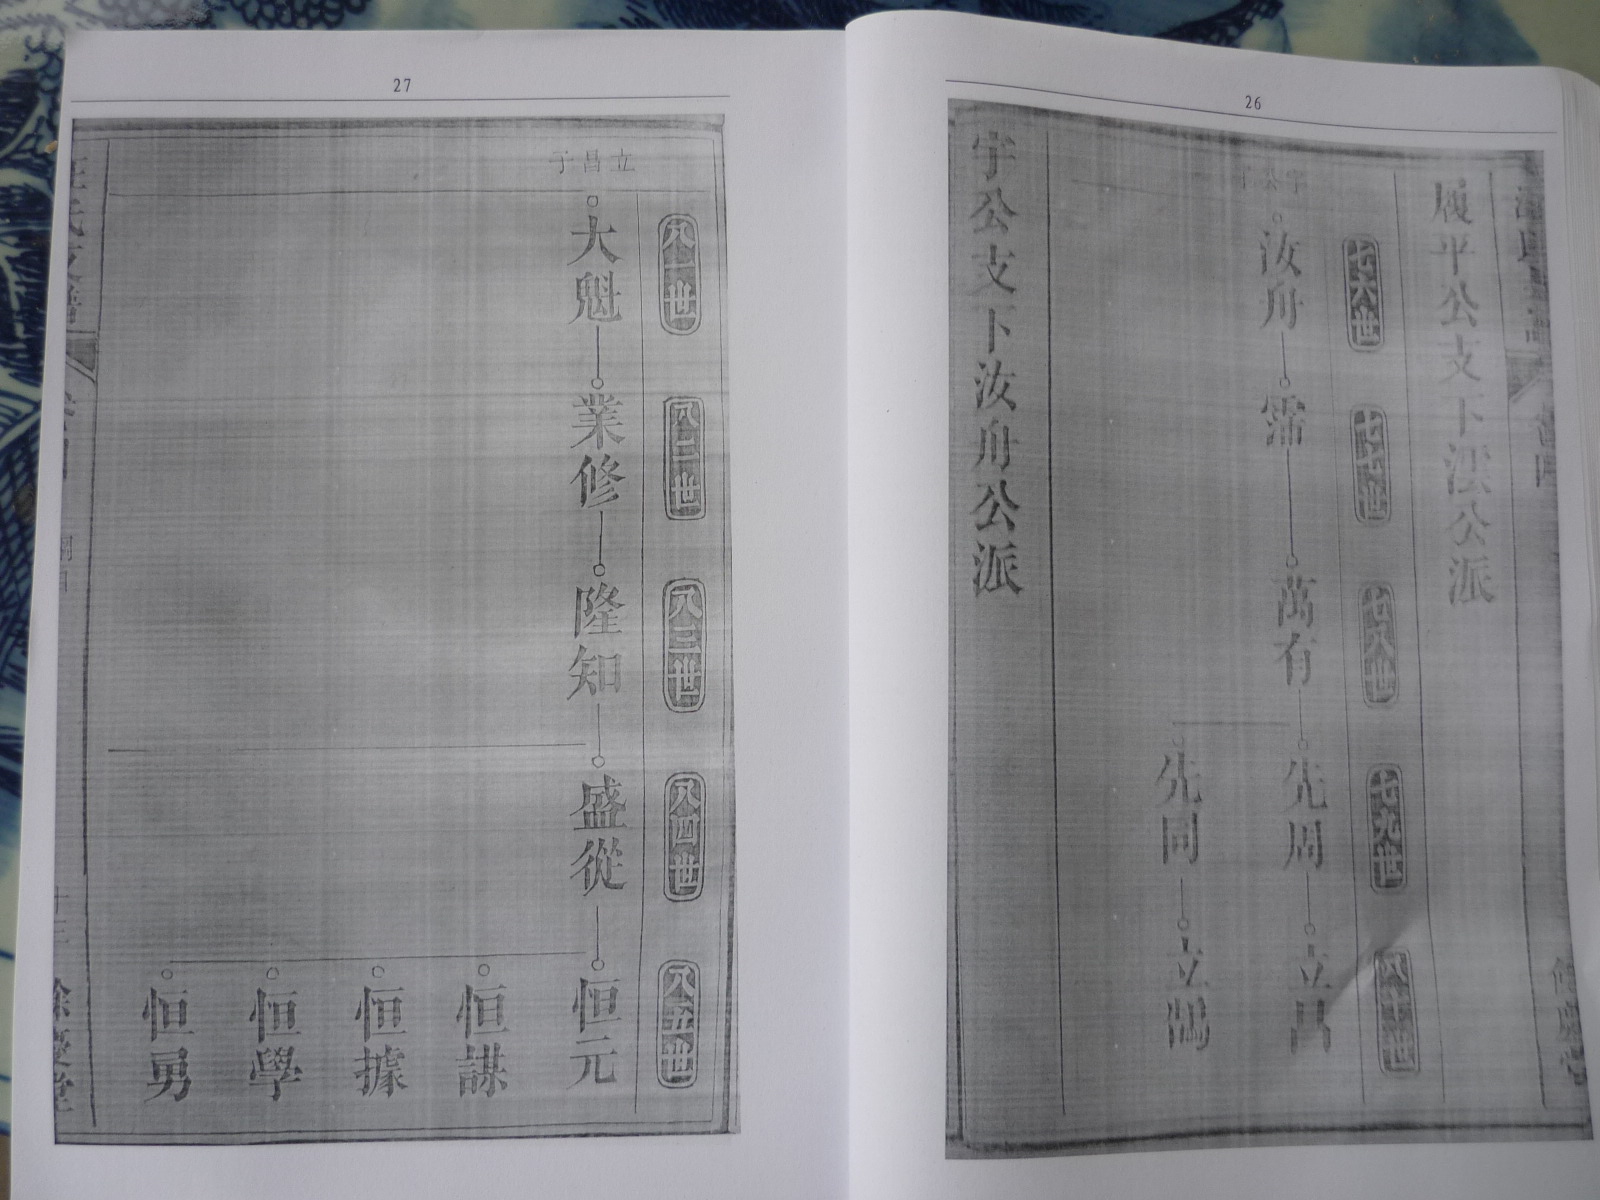 26
履平公支下澐公派
七六世
七七世
七八世
七九世
八十世
汝舟
霈
萬有
先周
立昌
先同
立鴻
宇公支下汝舟公派
27
八一世
八二世
八三世
八四世
八五世
立昌子
大魁
業修
隆知
盛從
恒元
恒謀
恒據
恒學
恒勇
汪氏支譜
餘慶堂